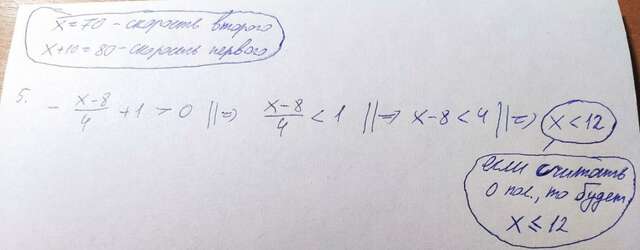 x=70 - скорость второго
x+10=80 - скорость первого
5. - \frac{x-8}{4} +1 > 0 ||⇒ \frac{x-8}{4} < 1 ||⇒ x-8<4 ||⇒ x<12
если считать
0 пол., то будет
x≤12